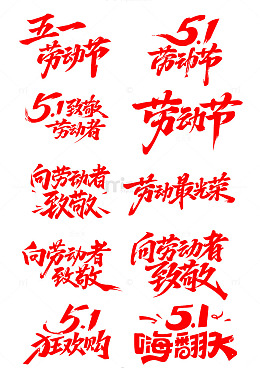 五一
劳动节
5.1
劳动节
5.1致敬
劳动者
劳动节
向劳动者
致敬
劳动最光荣
向劳动者
致敬
向劳动者
致敬
5.1
狂欢购
5.1
嗨翻天